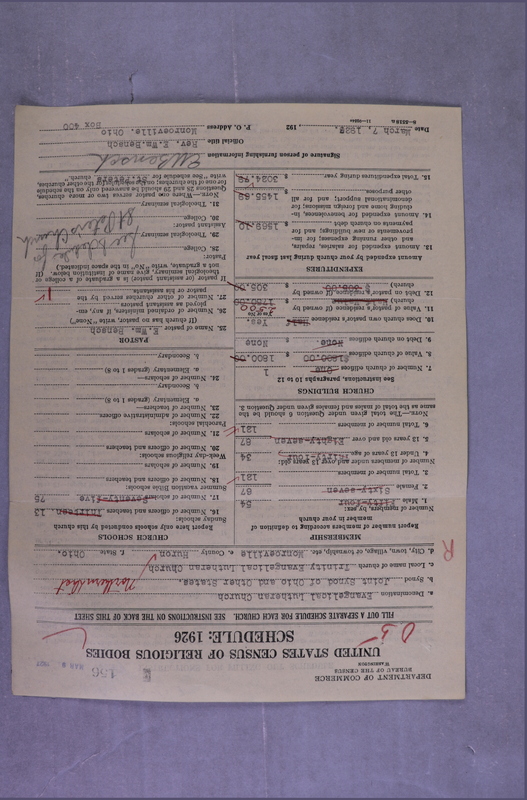 DEPARTMENT OF COMMERCE
BUREAU OF THE CENSUS
WASHINGTON
156
MAR 8 1927
UNITED STATES CENSUS OF RELIGIOUS BODIES
SCHEDULE: 1926
FILL OUT A SEPARATE SCHEDULE FOR EACH CHURCH. SEE INSTRUCTIONS ON THE BACK OF THIS SHEET
a. Denomination Evangelical Lutheran Church
b. Synod Joint Synod of Ohio and Other States.
c. Local name of church Trinity Evangelical Lutheran Church
d. City, town, village, or township, etc. Monroeville e. County Huron f. State Ohio.
R
MEMBERSHIP
Report number of members according to definition of member in your church
Number of members, by sex:
1. Male Fifty-four 54
2. Female Sixty-seven 67
3. Total number of members 121
Number of members under and over 13 years old:
4. Under 13 years of age Fifty-four 34
5. 13 years old and over Eighty-seven 87
6. Total number of members 121
NOTE.—The total given under Question 6 should be the same as the total of males and females given under Question 3.
CHURCH BUILDINGS
See instructions, paragraphs 10 to 12
7. Number of church edifices One 1
8. Value of church edifices $1800.00 $ 1800.00
9. Debt on church edifices None. $ None
10. Does church own pastor's residence Yes.
11. Value of pastor's residence (if owned by church) $ 1750.00
12. Debt on pastor's residence (if owned by church) $ 305.00
EXPENDITURES
Amount expended by your church during last fiscal year
13. Amount expended for salaries, repairs, and other running expenses; for improvements or new buildings; and for payments on church debt $ 1569.10
14. Amount expended for benevolences, including home and foreign missions; for denominational support; and for all other purposes $ 1455.68
15. Total expenditures during year $ 3024.78
CHURCH SCHOOLS
Report here only schools conducted by this church
Sunday school:
16. Number of officers and teachers Thirteen. 13
17. Number of scholars Seventy-five 75
Summer vacation Bible school:
18. Number of officers and teachers
19. Number of scholars
Week-day religious school:
20. Number of officers and teachers
21. Number of scholars
Parochial school:
22. Number of administrative officers
23. Number of teachers—
a. Elementary (grades 1 to 8)
b. Secondary
24. Number of scholars—
a. Elementary (grades 1 to 8)
b. Secondary
PASTOR
25. Name of pastor E.Wm. Bensch
(If church has no pastor, write "None")
26. Number of ordained ministers, if any, employed as assistant pastors
27. Number of other churches served by the pastor or his assistants
If pastor (or assistant pastor) is a graduate of a college or theological seminary, give name of institution below. (If not a graduate, write "No" in the space indicated.)
Pastor:
28. College
29. Theological seminary
Assistant pastor:
30. College
31. Theological seminary
See Schedule for St Peter's Church
NOTE.—Where one pastor serves two or more churches, Questions 28 and 29 should be answered only on the schedule for one of the churches; on each schedule for the other churches, write "See schedule for St. Peters church."
Signature of person furnishing information E W Bensch
Official title Rev. E. Wm. Bensch
Date March 7, 1927. P. O. Address Monroeville, Ohio. Box 400